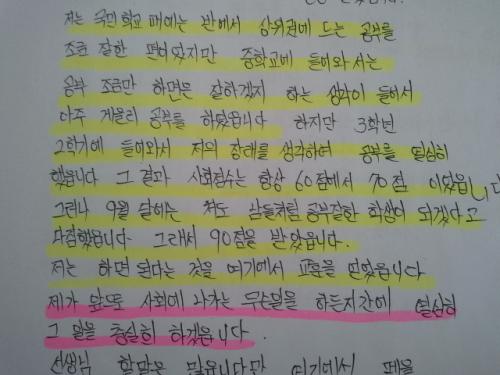 저는 국민학교 때에는 반에서 상위권에 드는 공부를
조금 잘한 편이었지만 중학교에 들어와서는
공부 조금만 하면은 잘하겠지 하는 생각이 들어서
아주 게을리 공부를 하였읍니다 하지만 3학년
2학기에 들어와서 저의 장래를 생각하여 공부를 열심히
했읍니다 그 결과 사회점수는 항상 60점에서 70점 이었읍니다
그러나 9월 달에는 저도 남들처럼 공부잘한 학생이 되겠다고
다짐했읍니다. 그래서 90점을 받았읍니다.
저는 하면 된다는 것을 여기에서 교훈을 얻었읍니다
제가 앞으로 사회에 나가는 무슨일을 하든지간에 열심히
그 일을 충실히 하겠읍니다.
선생님 할말은 많읍니다만 여기에서 펜을